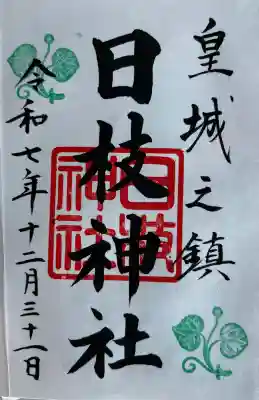 皇城之鎮
日枝神社
令和七年十二月三十一日
日枝神社